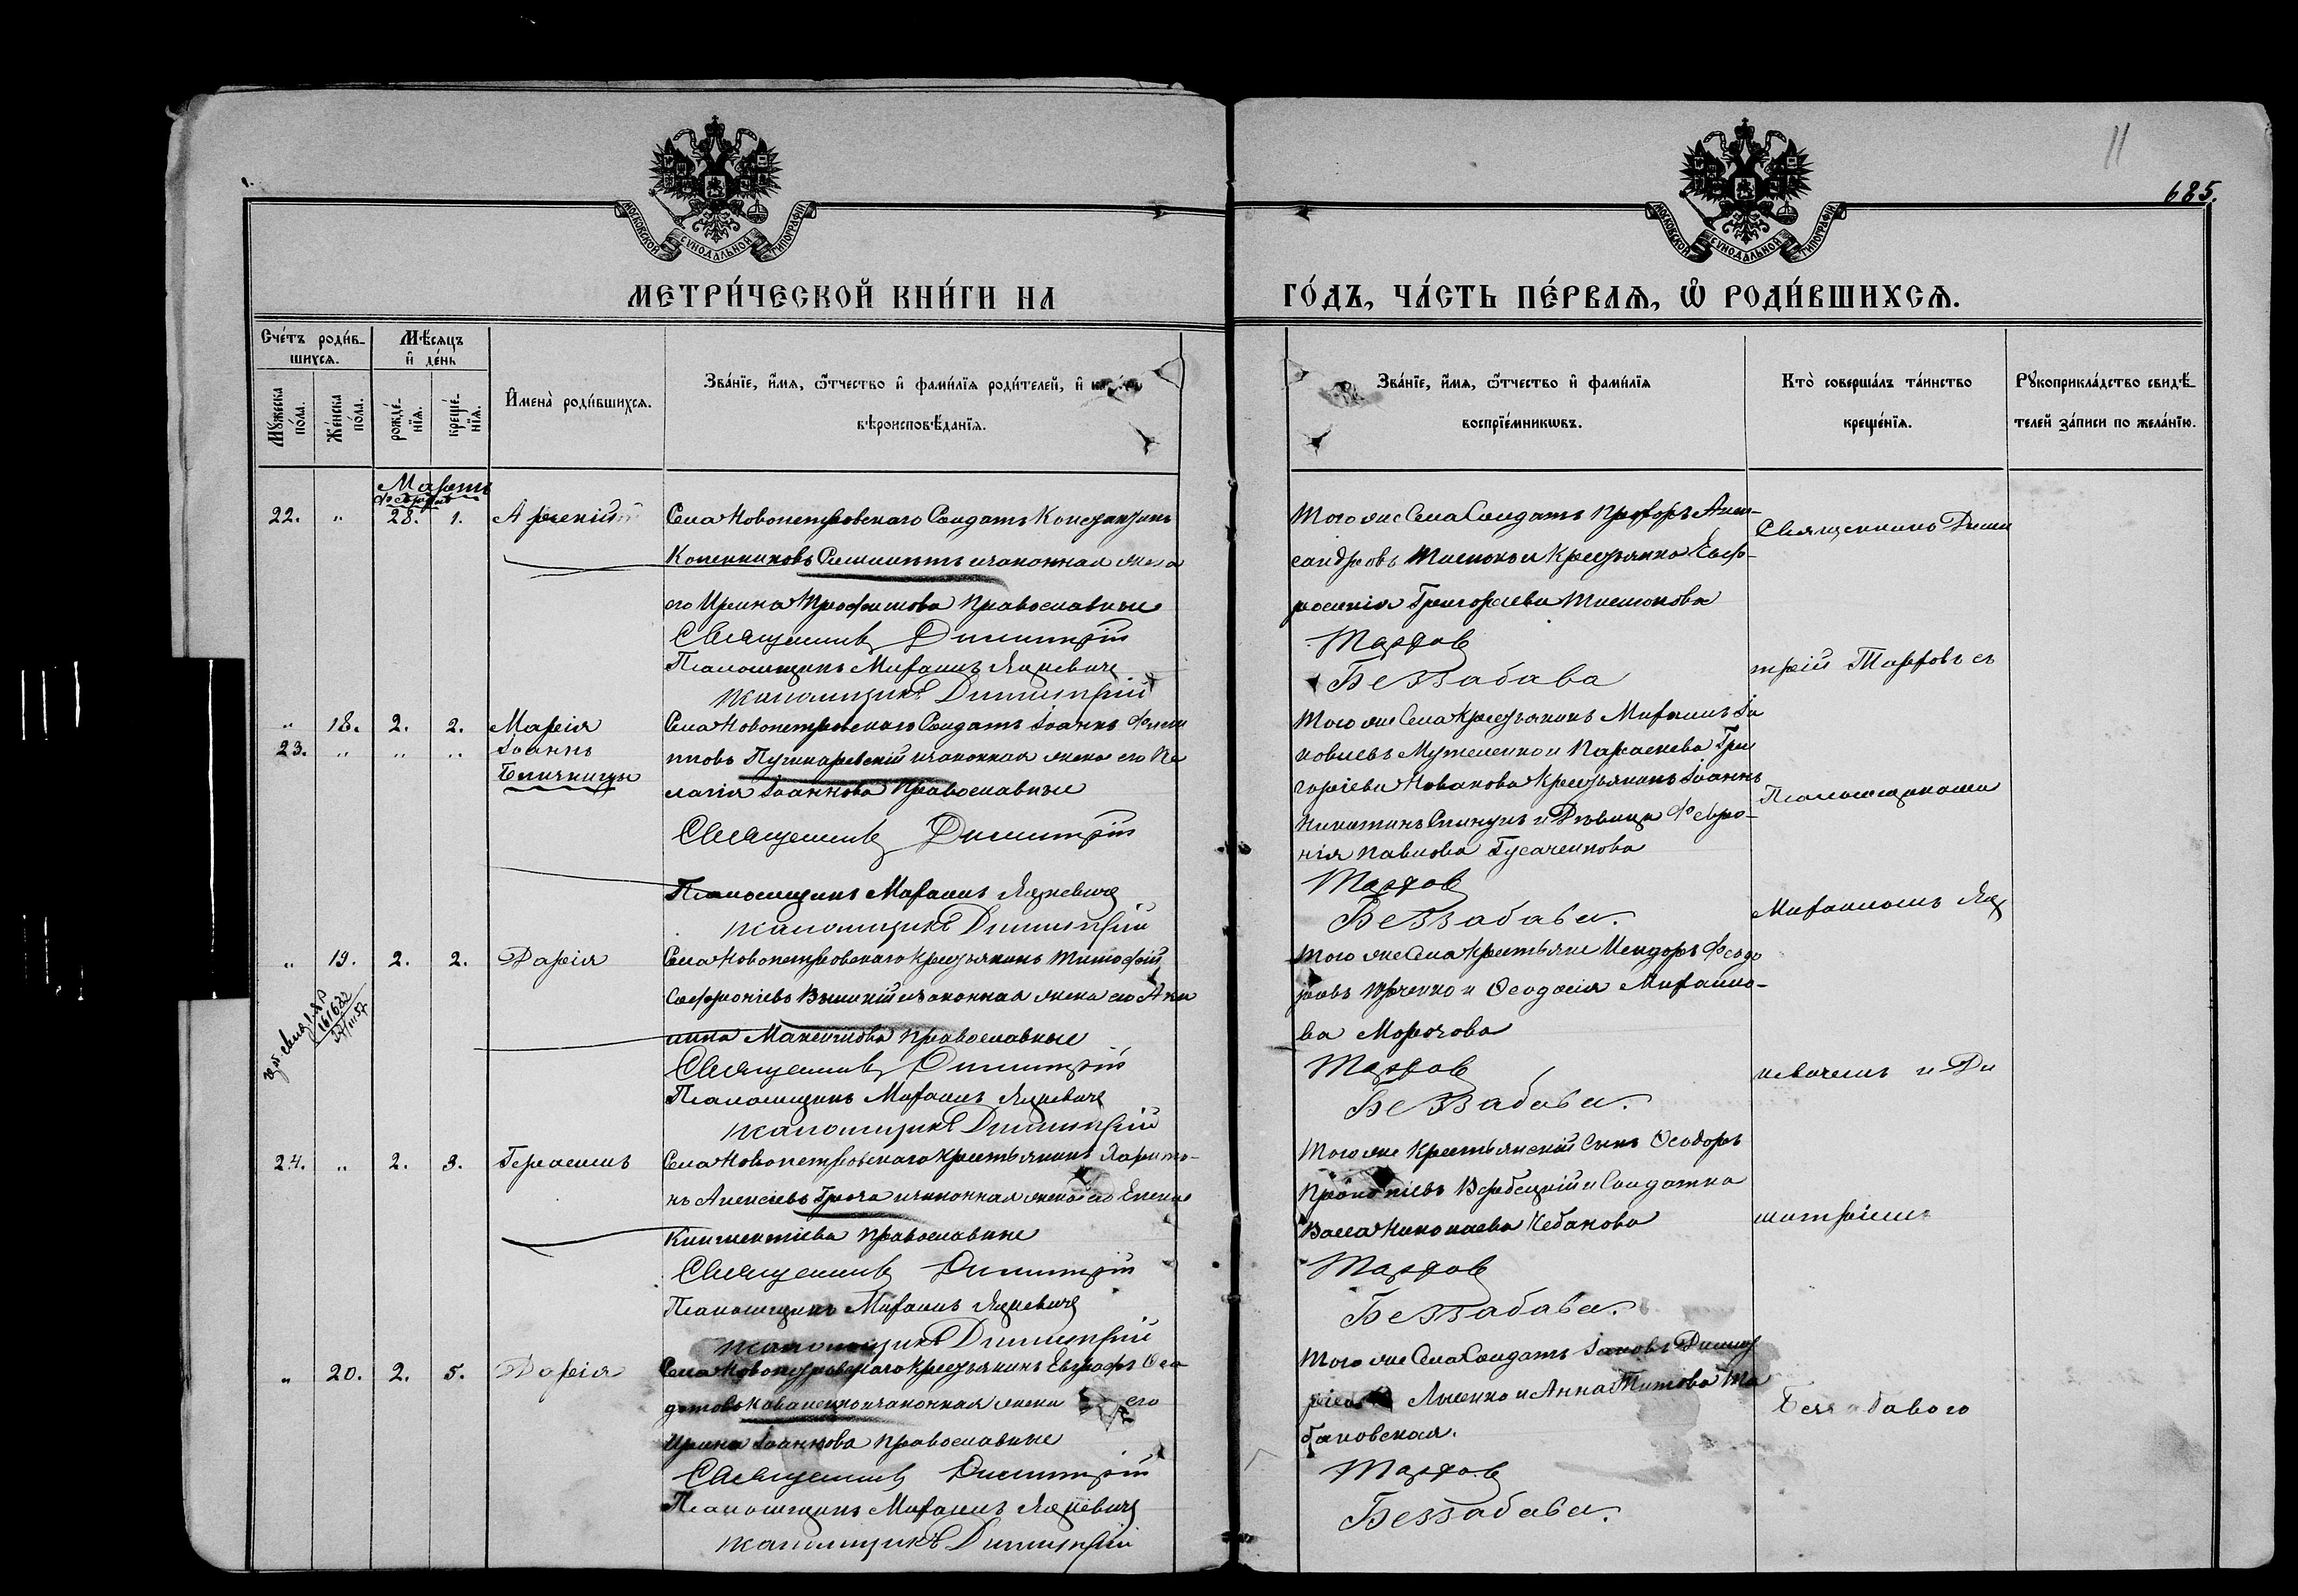 11
685.
МОСКОВСКОЙ СѴНОДАЛЬНОЙ ТИПОГРАФІИ
МОСКОВСКОЙ СѴНОДАЛЬНОЙ ТИПОГРАФІИ
МЕТРИ́ЧЕСКОЙ КНИ́ГИ НА
ГО́ДЪ, ЧА́СТЬ ПЕ́РВАЯ, Ѡ҆ РОДИ́ВШИХСЯ.
Сче́тъ роди́в-
шихся.
Мꙋжеска по́ла.
Же́нска по́ла.
Мѣ́сяцъ
и҆ де́нь
рожде́-
нїя.
креще́-
нїя.
И҆мена̀ роди́вшихся.
Зва́нїе, и҆́мя, ѻ҆́тчество и҆ фами́лїя роди́телей, и҆
вѣроисповѣ́данїя.
Зва́нїе, и҆́мя, ѻ҆́тчество и҆ фами́лїя
воспрїе́мникωвъ.
Кто̀ соверша́лъ та́инство
креще́нїя.
Рꙋкоприкла́дство свидѣ́-
телей за́писи по жела́нїю.
Мартъ
Февраль
22. " 28. 1. Арсеній
Села Новопетровскаго Солдатъ Константинъ
законная жена
его Ирина Трофимова Православные
Священникъ Димитрій
Псаломщикъ Михаилъ Яцкевичъ
Псаломщикъ Димитрій
Того же Села Солдатъ
сандровъ и Крестьянка Евф-
росинія Григорьева
Тарховъ
Беззабава
Священникъ Дими
трій Тарховъ съ
Псаломщиками
Михаиломъ Яц
кевичемъ и Ди
митріемъ
Беззабавою
" 18. 2. 2. Марія
23. " " " Іоаннъ
Близницы
Села Новопетровскаго Солдатъ Іоаннъ Фили
пповъ Пушкаревскій и законная жена его Пе
лагія Іоаннова Православные
Священникъ Димитрій
Псаломщикъ Михаилъ Яцкевичъ
Псаломщикъ Димитрій
Того же Села Крестьянинъ Михаилъ Іа
ковлевъ и Параскева Гри
горіева Новакова Крестьянинъ Іоаннъ
Никитинъ и Дѣвица Февро-
нія Павлова Гусаченкова
Тарховъ
Беззабава.
" 19. 2. 2. Дарія
Села Новопетровскаго Крестьянинъ Тимофій
Софроніевъ и законная жена его Аки
лина Максимова Православные
Священникъ Димитрій
Псаломщикъ Михаилъ Яцкевичъ
Псаломщикъ Димитрій
Того же Села Крестьяне Исидоръ Федо
ровъ и Ѳеодосія Михайло-
ва Морозова
Тарховъ
Беззабава.
24. " 2. 3. Герасимъ
Села Новопетровскаго Крестьянинъ Харито-
нъ Алексіевъ и законная жена его Елена
Климентіева Православные
Священникъ Димитрій
Псаломщикъ Михаилъ Яцкевичъ
Псаломщикъ Димитрій
Того же Крестьянскій Сынъ Ѳеодоръ
Прокопіевъ Вербецкій и Солдатка
Васса Николаева Чебанова
Тарховъ
Беззабава.
" 20. 2. 5. Дарія
Села Новопетровскаго Крестьянинъ Евграфъ Ѳео
дотовъ Коваленко и законная жена его
Ирина Іоаннова Православные
Священникъ Димитрій
Псаломщикъ Михаилъ Яцкевичъ
Псаломщикъ Димитрій
Того же Села Солдатъ Іаковъ Димит
ріевъ Лысенко и Анна Титова
Тарховъ
Беззабава.